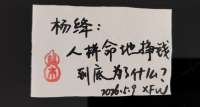 杨绛：
人拼命地挣钱
到底为了什么？
2026.5.9 XFW